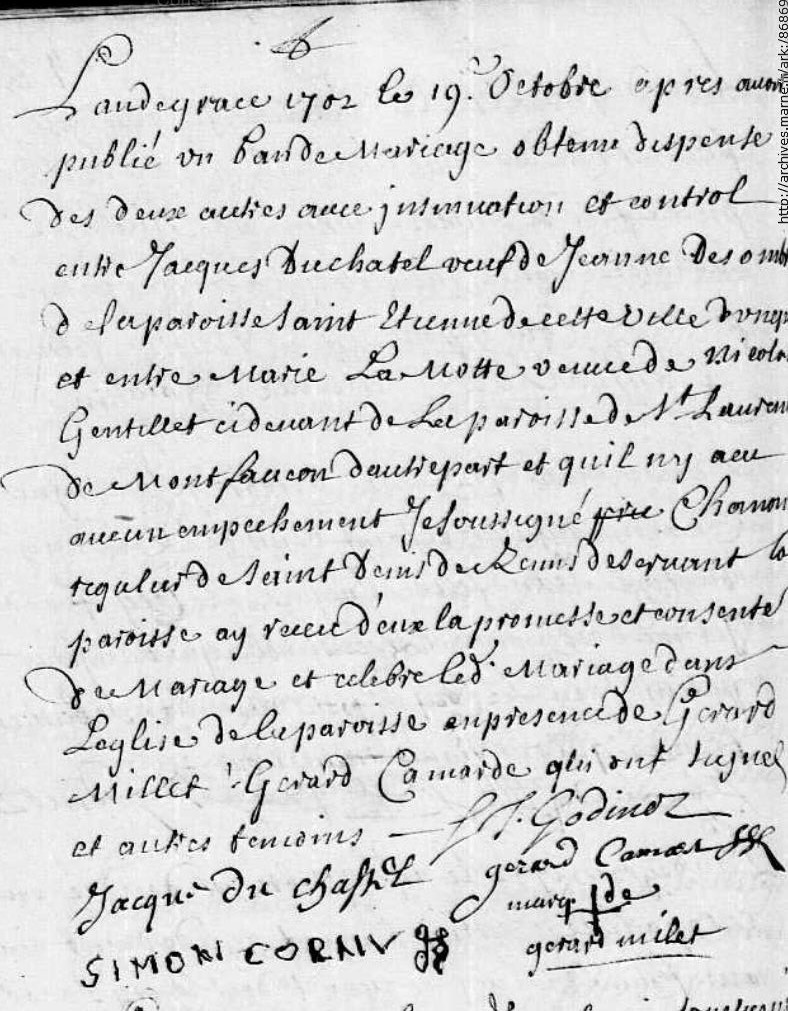 http://archives.marne.fr/ark:/86869
L'andegrace 1702 le 19e Octobre apres avoir
publié un bandeMariage obtenu dispense
des deux autres avec insinuation et control
entre Jacques Duchatel veuf de Jeanne Desomb
d elaparoisse Saint Etienne de cette Ville d'une p
et entre Marie La Motte veuve de Nicolas
Gentillet cidevant de La paroisse de St Lauren
de Montfaucon d'autrepart et quil ny a eu
aucun empechement Je soussigné Chanoin
regulier de Saint Denis de Reims deservant la
paroisse ay receu d'eux la promesse et consente
de Mariage et celebre led. Mariage dans
Leglise de la paroisse en presence de Gerard
Millet, Gerard Camarde qui ont signez
et autres temoins — Godinot
Jacque du chastel gerard Camart
marq de
SIMON CORNV gerard milet